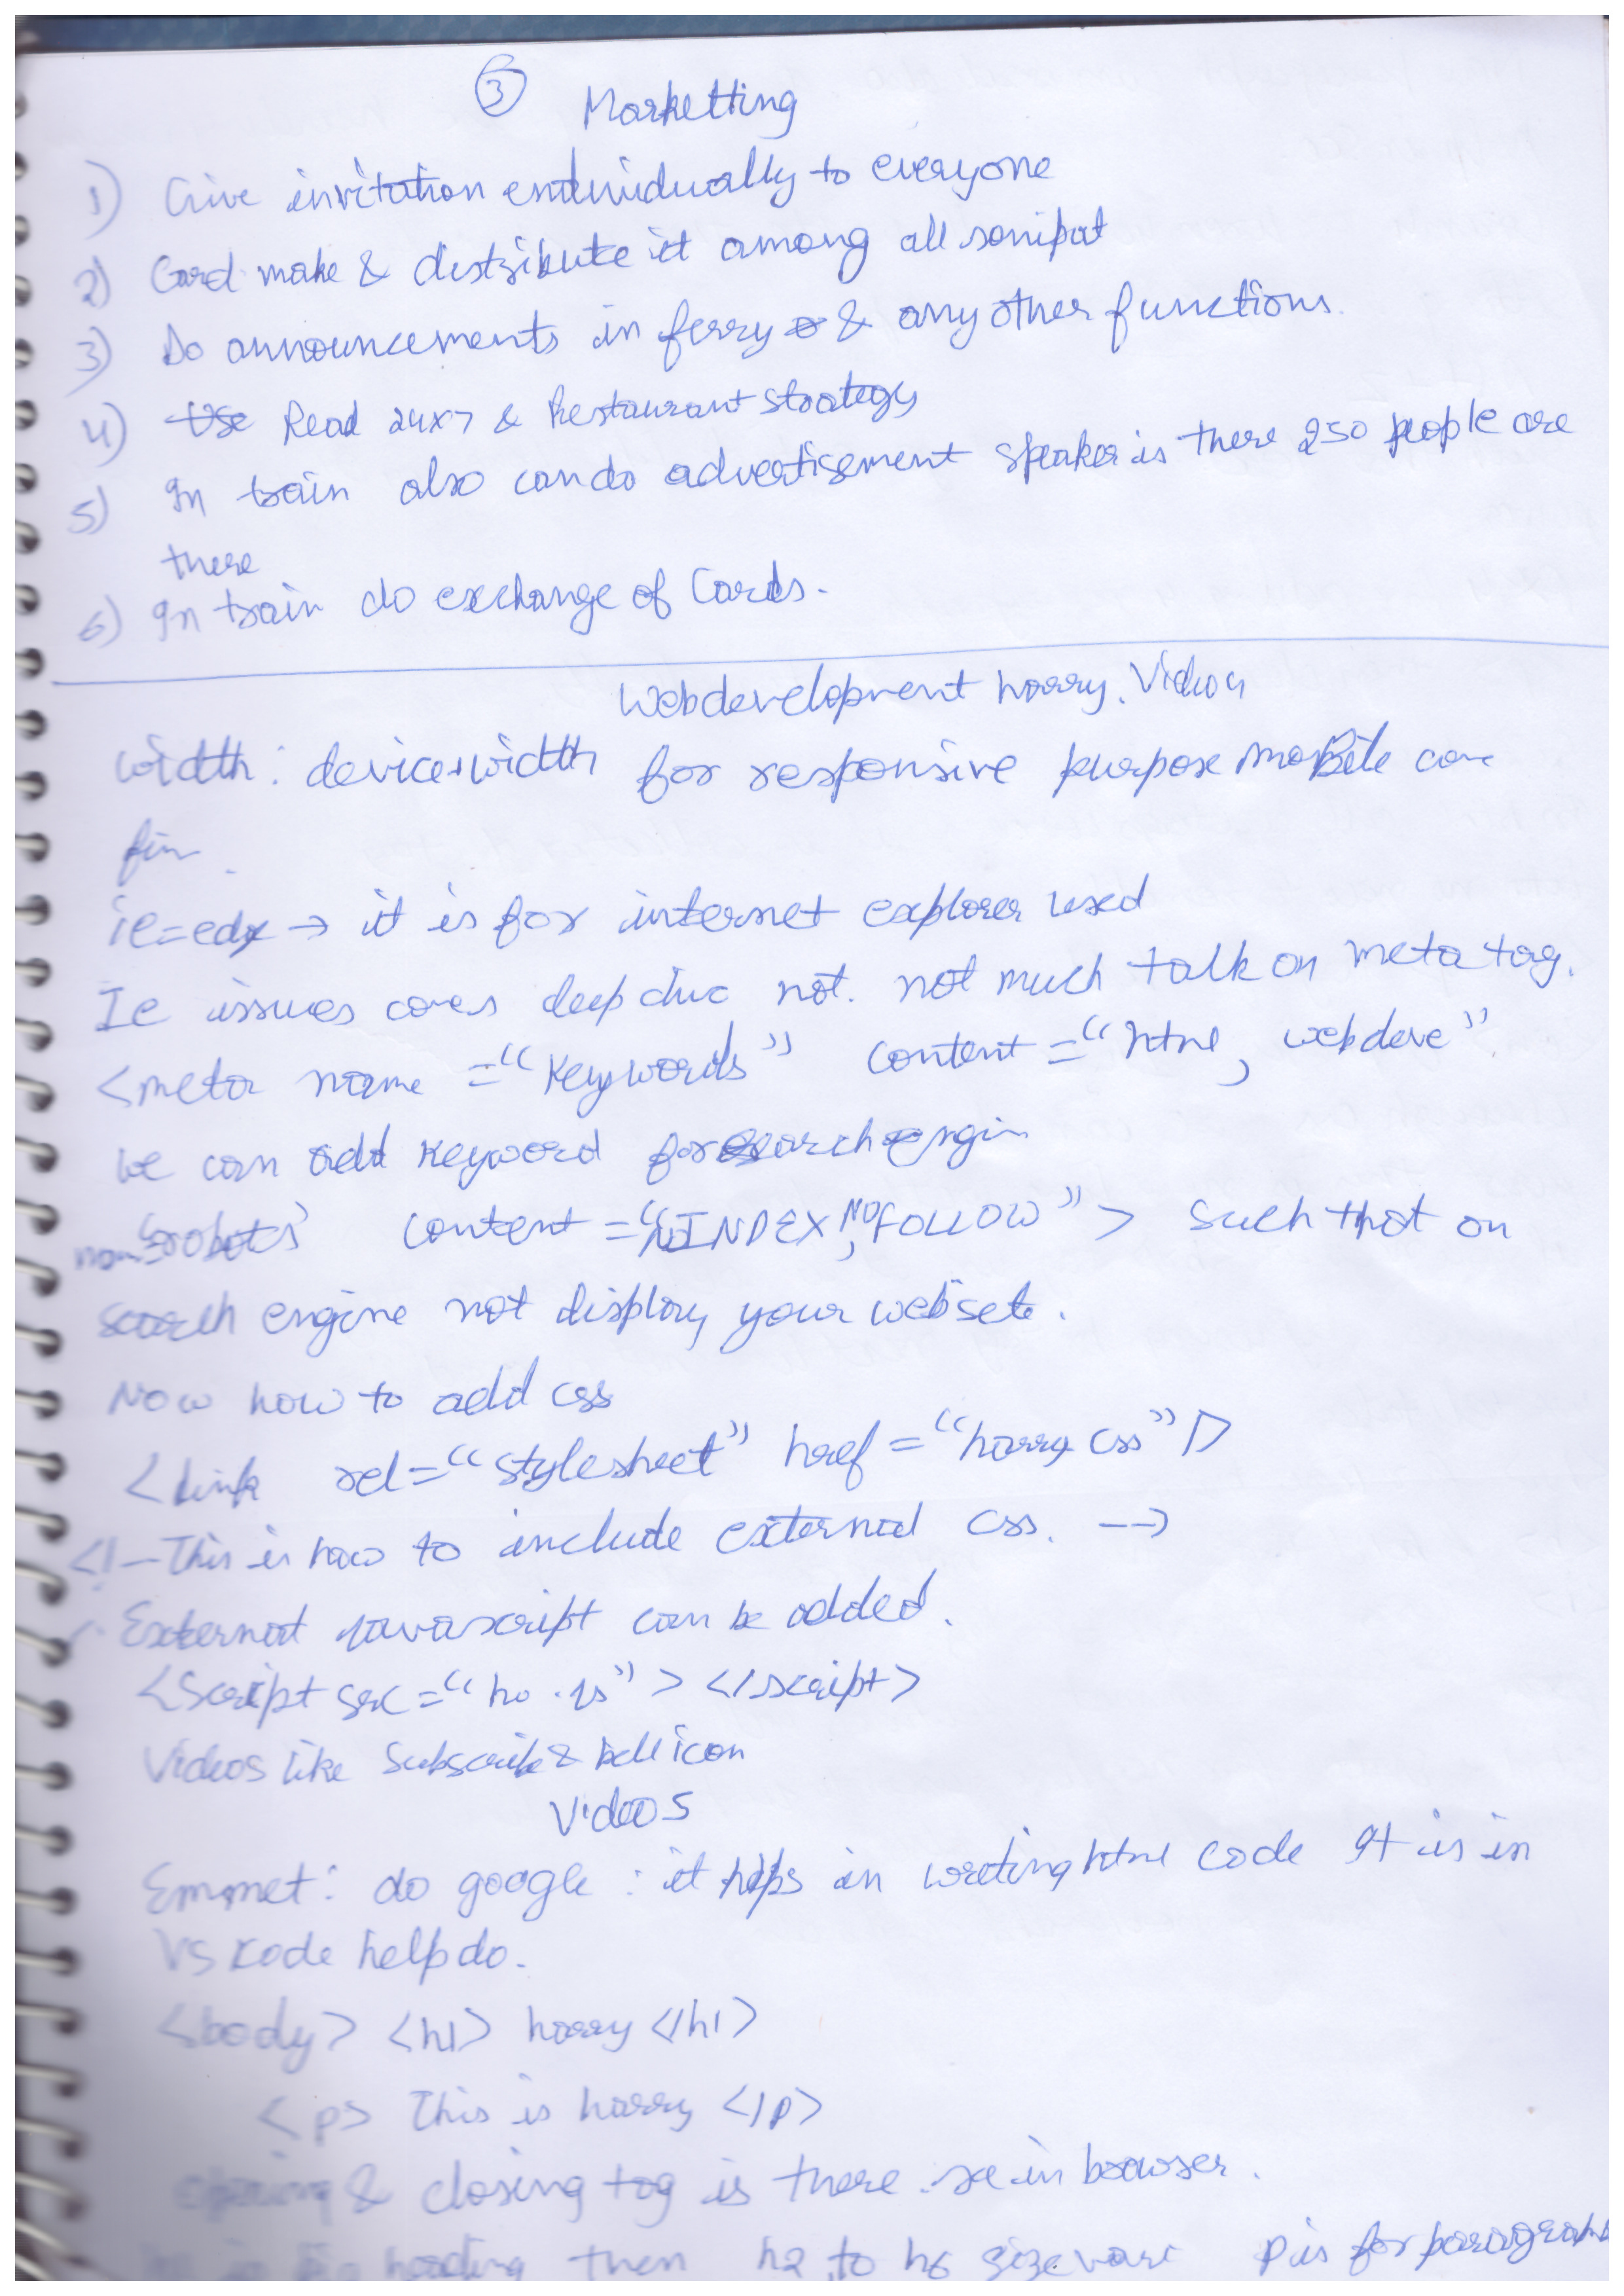 3
Marketting
1) Give invitation endividually to everyone
2) Card make & distribute it among all sonipat
3) Do announcements in ferry & any other functions.
4) Use Read 24x7 & Restaurant strategy
5) In train also can do advertisement speaker is there 250 people are
there
6) In train do exchange of Cards.
Webdevelopment harry. Video 4
width: device-width for responsive purpose mobile can
fin.
ie=edge → it is for internet explorer used
Ie issues comes deep dive not. not much talk on meta tag.
<meta name ="Keywords" content ="html, webdeve"
We can add keyword for search engin
name="robots" content ="NOINDEX, NOFOLLOW"> such that on
search engine not display your websete.
Now how to add css
<Link rel="stylesheet" href="harry.css"/>
<!-- This is how to include external css. -->
External javascript can be added.
<Script src="ha.js"> </script>
Videos like Subscribe & bell icon
Video 5
Emmet: do google : it helps in writing html code It is in
VS kode help do.
<body> <h1> harry </h1>
<p> This is harry </p>
opening & closing tag is there. see in browser.
heading then h2 to h6 size vari P is for paragraph